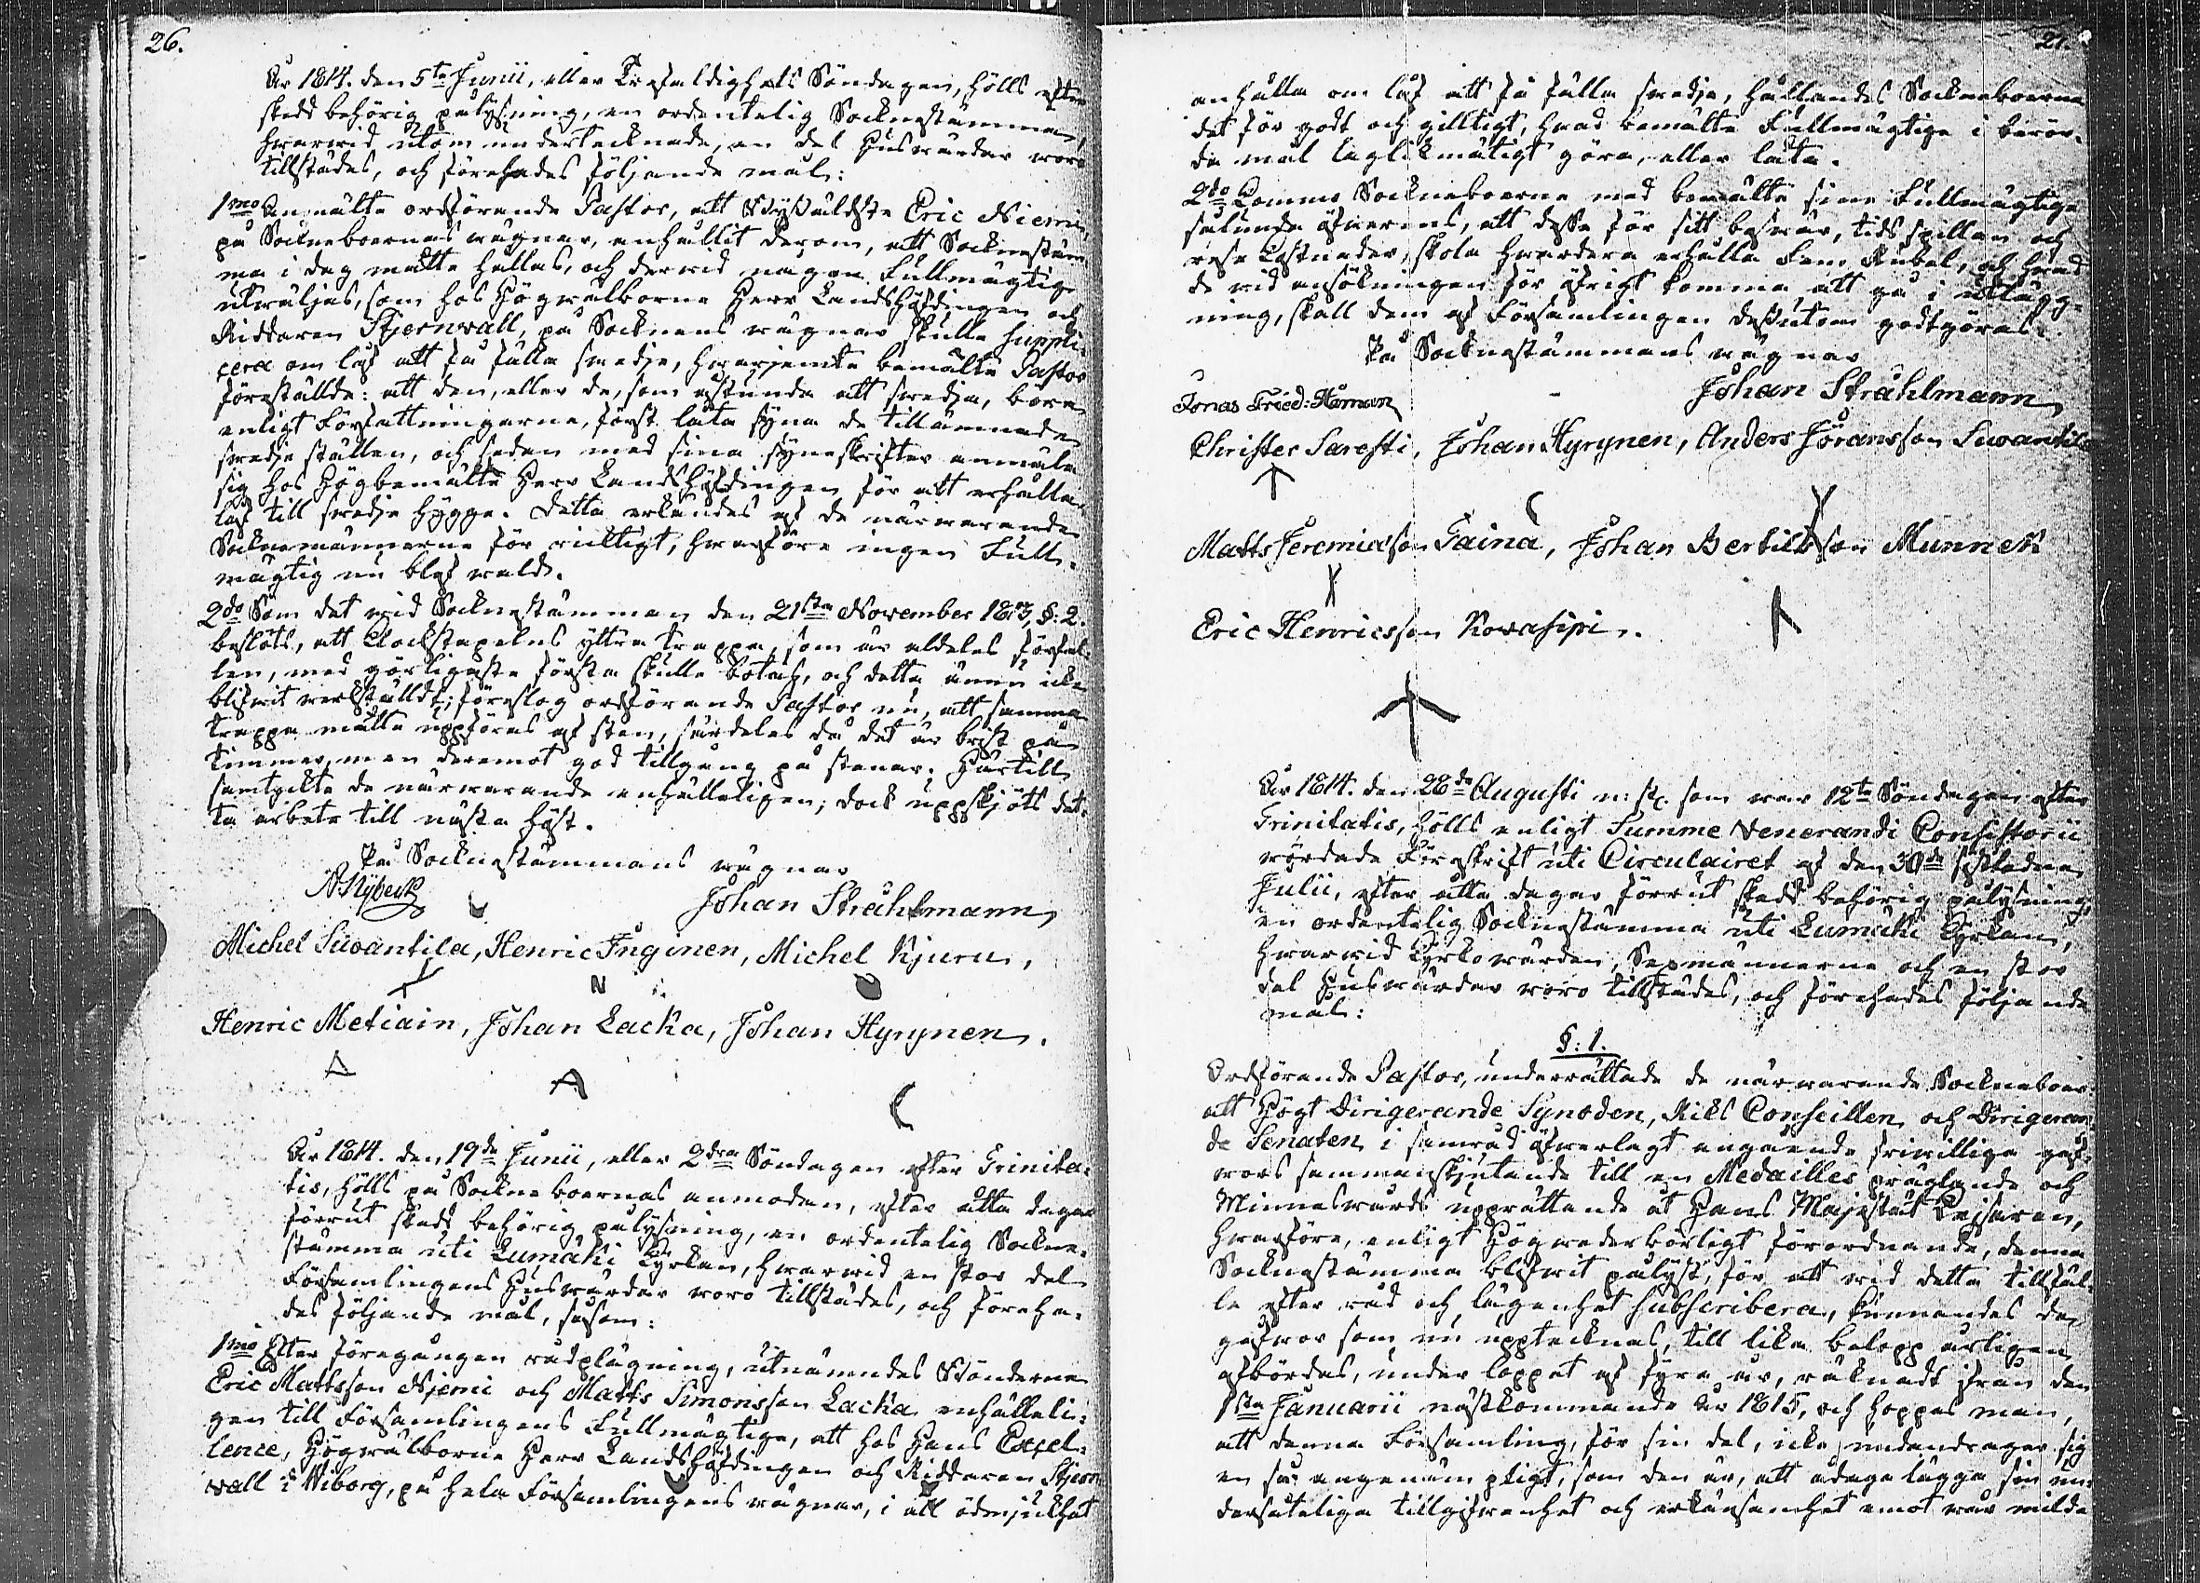 26.
År 1814. den 5te Junii, eller Trefaldighets Söndagen, hölls efter
skedd behörig pålysning, en ordentelig Socknestämma,
hwarwid utom undertecknade, en del Huswärdar woro
tillstädes, och förehades följande mål:
1mo Anmälte ordförande Pastor, att Eric Niemi
på Sockneboernas wägnar, anhållit derom, att Socknestäm
ma i dag måtte hållas, och derwid någon Fullmägtig
utwäljas, som hos Högwälborne Herr Landshöfdingen och
Riddaren Stjernwall, på Socknens wägnar skulle suppli-
cera om lof att få fälla swedje, hwarjemte bemälte Pastor
föreställde: att den, eller de, som åstunda att swedja, böra
enligt Författningarne, först låta syna de tillämnade
swedje ställen, och sedan med sina syneskrifter anmäla
sig hos Högbemälte Herr Landshöfdingen för att erhålla
lof till swedje hygge. Detta erkändes af de närwarande
Socknemännerne för riktigt, hwarföre ingen Full-
mägtig nu blef wald.
2do Som det wid Socknestämman den 21sta November 1813, §: 2.
beslöts, att Clockstapelns yttra trappa, som är aldeles förfal-
len, med görligaste första skulle botas, och detta ännu icke
blifwit werkställdt; föreslog ordförande Pastor nu, att samma
trappa måtte uppföras af sten, särdeles då det är brist på
timmer, men deremot god tillgång på stenar. Härtill
samtyckte de närwarande enhälleligen; dock uppskjöts det-
ta arbete till nästa höst.
På Socknestämmans wägnar
Johan Stråhlmann
Michel Suwantila, Henric Inginen, Michel Kjuru,
Henric Metiain, Johan Lacka, Johan Hyrynen.
År 1814. den 19de Junii, eller 2dra Söndagen efter Trinita-
tis, hölls på Sockneboernas anmodan, efter åtta dagar
förrut skedd behörig pålysning, en ordentelig Sockne-
stämma uti Lumäki Kyrkan, hwarwid en stor del
Församlingens Huswärdar woro tillstädes, och föreha-
des följande mål, såsom:
1mo Efter föregången rådplägning, utnämndes Bönderne
Eric Mattsson Njemi och Matts Simonsson Lacka enhälleli-
gen till Församlingens Fullmägtige, att hos Hans Excel-
lence, Högwälborne Herr Landshöfdingen och Riddaren Stjern
wall i Wiborg, på hela Församlingens wägnar, i all ödmjukhet
27.
anhålla om lof att få fälla swedje, hållandes Sockneboerne
det för godt och gilltigt, hwad bemälte Fullmägtige i berör-
da mål laglikmätigt göra, eller låta.
2do Komma Sockneboerne med bemälte sine Fullmägtige
sålunda öfwerens, att desse för sitt beswär, tids spillan och
rese kostnader, skola hwardera erhålla Fem Rubel, och hwad
de wid ansökningen för öfrigt komma att gå i utlägg-
ning, skall dem af Församlingen dessutom godtgöras.
På Socknestämmans wägnar
Johan Stråhlmann
Jonas Fried: Homan
Christer Saresti, Johan Hyrynen, Anders Jöransson Suwantila
Matts Jeremiasson Taina, Johan Bertilsson Munne
Eric Henricsson Kowasipi.
År 1814. den 28de Augusti n: st. som war 12te Söndagen efter
Trinitatis, hölls enligt Summe Venerandi Consistorii
wördade Föreskrift uti Circulairet af den 30de sistledne
Julii, efter åtta dagar förrut skedd behörig pålysning,
en ordentelig Socknestämma uti Lumäki Kyrkan,
hwarwid Kyrkowärden, Sexmännerne och en stor
del Huswärdar woro tillstädes, och förehades följande
mål:
§: 1.
Ordförande Pastor, underrättade de närwarande Sockneboer
att Högt Dirigerande Synoden, Riks Conseillen och Dirigeran
de Senaten i samråd öfwerlagt angående friwillige gåf-
wors sammanskjutande till en Medailles präglande och
Minneswårds upprättande åt Hans Majestät Kejsaren,
hwarföre, enligt Högwederbörligt förordnande, denna
Socknestämma blifwit pålyst, för att wid detta tillfäl-
le efter råd och lägenhet subscribera, kunnandes de
gåfwor som nu upptecknas, till lika belopp årligen
afbördas, under loppet af fyra år, räknadt ifrån den
1sta Januarii nästkommande år 1815, och hoppas man,
att denna Församling, för sin del, icke undandrager sig
en så angenäm pligt, som den är, att ådaga lägga sin un-
dersåteliga tillgifwenhet och erkänsamhet emot wår milda